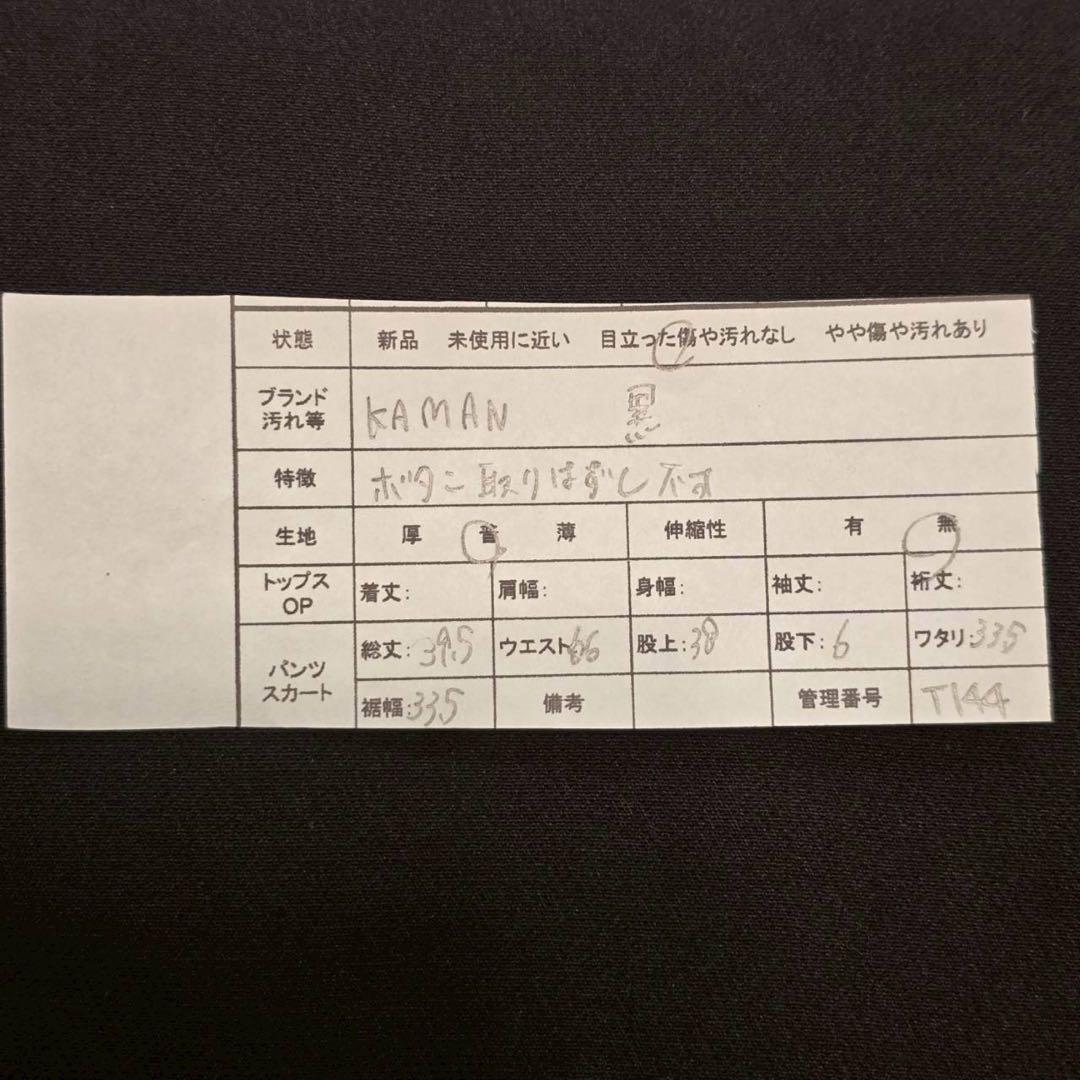 状態 新品 未使用に近い 目立った傷や汚れなし やや傷や汚れあり
ブランド 汚れ等 KAMAN 黒
特徴 ボタン取りはずし不可
生地 厚 普 薄 伸縮性 有 無
トップス OP 着丈: 肩幅: 身幅: 袖丈: 裄丈:
パンツ スカート 総丈:39.5 ウエスト66 股上:38 股下:6 ワタリ:33.5
裾幅:33.5 備考 管理番号 T144